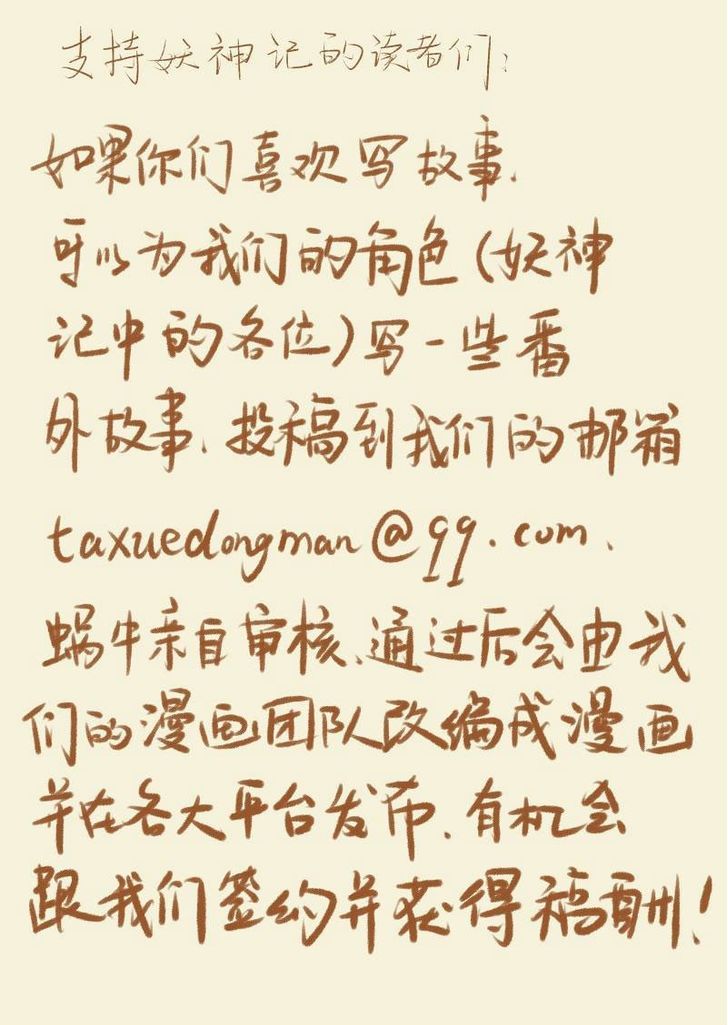 支持妖神记的读者们:
如果你们喜欢写故事,
可以为我们的角色(妖神
记中的各位)写一些番
外故事,投稿到我们的邮箱
taxuedongman@qq.com、
蜗牛亲自审核,通过后会由我
们的漫画团队改编成漫画
并在各大平台发布,有机会
跟我们签约并获得稿酬!